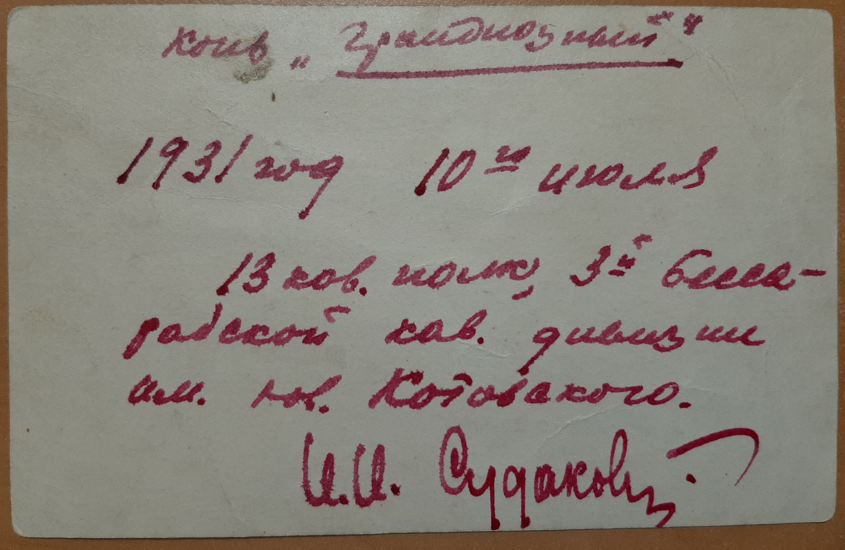 конь „Грандиозный"
1931 год 10ᵍᵒ июля
13 кав. полк, 3й Бесса-
рабской кав. дивизии
им. тов. Котовского.
И.И. Судаков